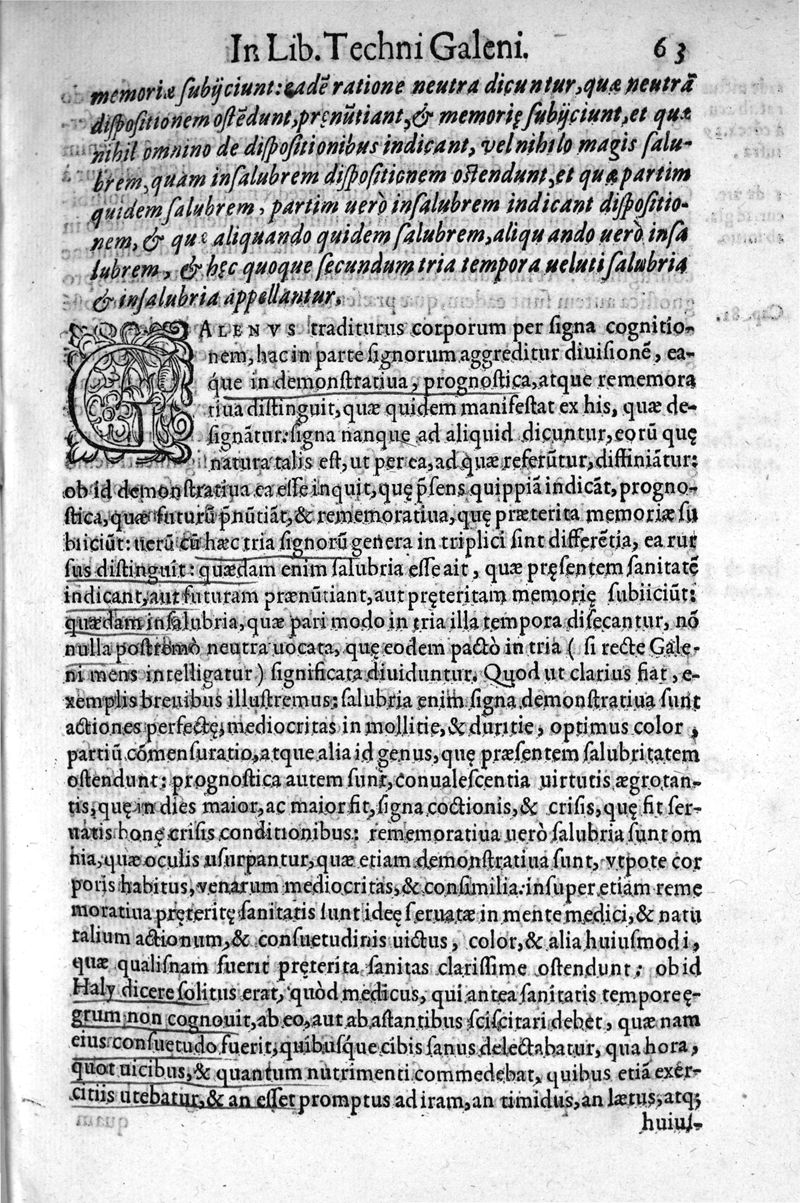 In Lib. Techni Galeni. 63
memoriæ ſubijciunt: eadē ratione neutra dicuntur, quæ neutrā
diſpoſitionem oſtēdunt, prenūtiant, & memorię ſubijciunt, et quæ
nihil omnino de diſpoſitionibus indicant, vel nihilo magis ſalu-
brem, quam inſalubrem diſpoſitionem oſtendunt, et quæ partim
quidem ſalubrem, partim uerò inſalubrem indicant diſpoſitio-
nem, & quæ aliquando quidem ſalubrem, aliquando uerò inſa
lubrem, & hęc quoque ſecundum tria tempora ueluti ſalubria
& inſalubria appellantur.
GALENVS traditurus corporum per ſigna cognitio-
nem, hac in parte ſignorum aggreditur diuiſionē, ea-
q́ue in demonſtratiua, prognoſtica, atque rememora
tiua diſtinguit, quæ quidem manifeſtat ex his, quæ de-
ſignātur: ſigna nanque ad aliquid dicuntur, eorū quę
natura talis eſt, ut per ea, ad quæ referūtur, diffiniātur:
ob id demonſtratiua ea eſſe inquit, quę p̄ſens quippiā indicāt, progno-
ſtica, quæ futurū p̄nūtiāt, & rememoratiua, quę præterita memoriæ ſu
biiciūt: uerū cū hæc tria ſignorū genera in triplici ſint differētia, ea rur
ſus diſtinguit: quædam enim ſalubria eſſe ait, quæ pręſentem ſanitatē
indicant, aut futuram prænūtiant, aut pręteritam memorię ſubiiciūt:
quædam inſalubria, quæ pari modo in tria illa tempora diſecantur, nō
nulla poſtremò neutra uocata, quę eodem pactò in tria ( ſi recte Gale-
ni mens intelligatur ) ſignificata diuiduntur. Quod ut clarius fiat, e-
xemplis breuibus illuſtremus: ſalubria enim ſigna demonſtratiua ſunt
actiones perfectę, mediocritas in mollitie, & duritie, optimus color,
partiū cōmenſuratio, atque alia id genus, quę præſentem ſalubritatem
oſtendunt: prognoſtica autem ſunt, conualeſcentia uirtutis ægrotan-
tis, quę in dies maior, ac maior fit, ſigna coctionis, & criſis, quę fit ſer-
uatis bonę criſis conditionibus: rememoratiua uerò ſalubria ſunt om
nia, quæ oculis uſurpantur, quæ etiam demonſtratiua ſunt, vtpote cor
poris habitus, venarum mediocritas, & conſimilia: inſuper etiam reme
moratiua pręteritę ſanitatis ſunt ideę ſeruatæ in mente medici, & natu
ralium actionum, & conſuetudinis uictus, color, & alia huiuſmodi,
quæ qualiſnam fuerit pręterita ſanitas clariſſime oſtendunt: ob id
Haly dicere ſolitus erat, quòd medicus, qui antea ſanitatis tempore ę-
grum non cognouit, ab eo, aut ab aſtantibus ſciſcitari debet, quæ nam
eius conſuetudo fuerit, quibuſq́ue cibis ſanus delectabatur, qua hora,
quot uicibus, & quantum nutrimenti commedebat, quibus etiā exer-
citiis utebatur, & an eſſet promptus ad iram, an timidus, an lætus, atq;
huiuſ-